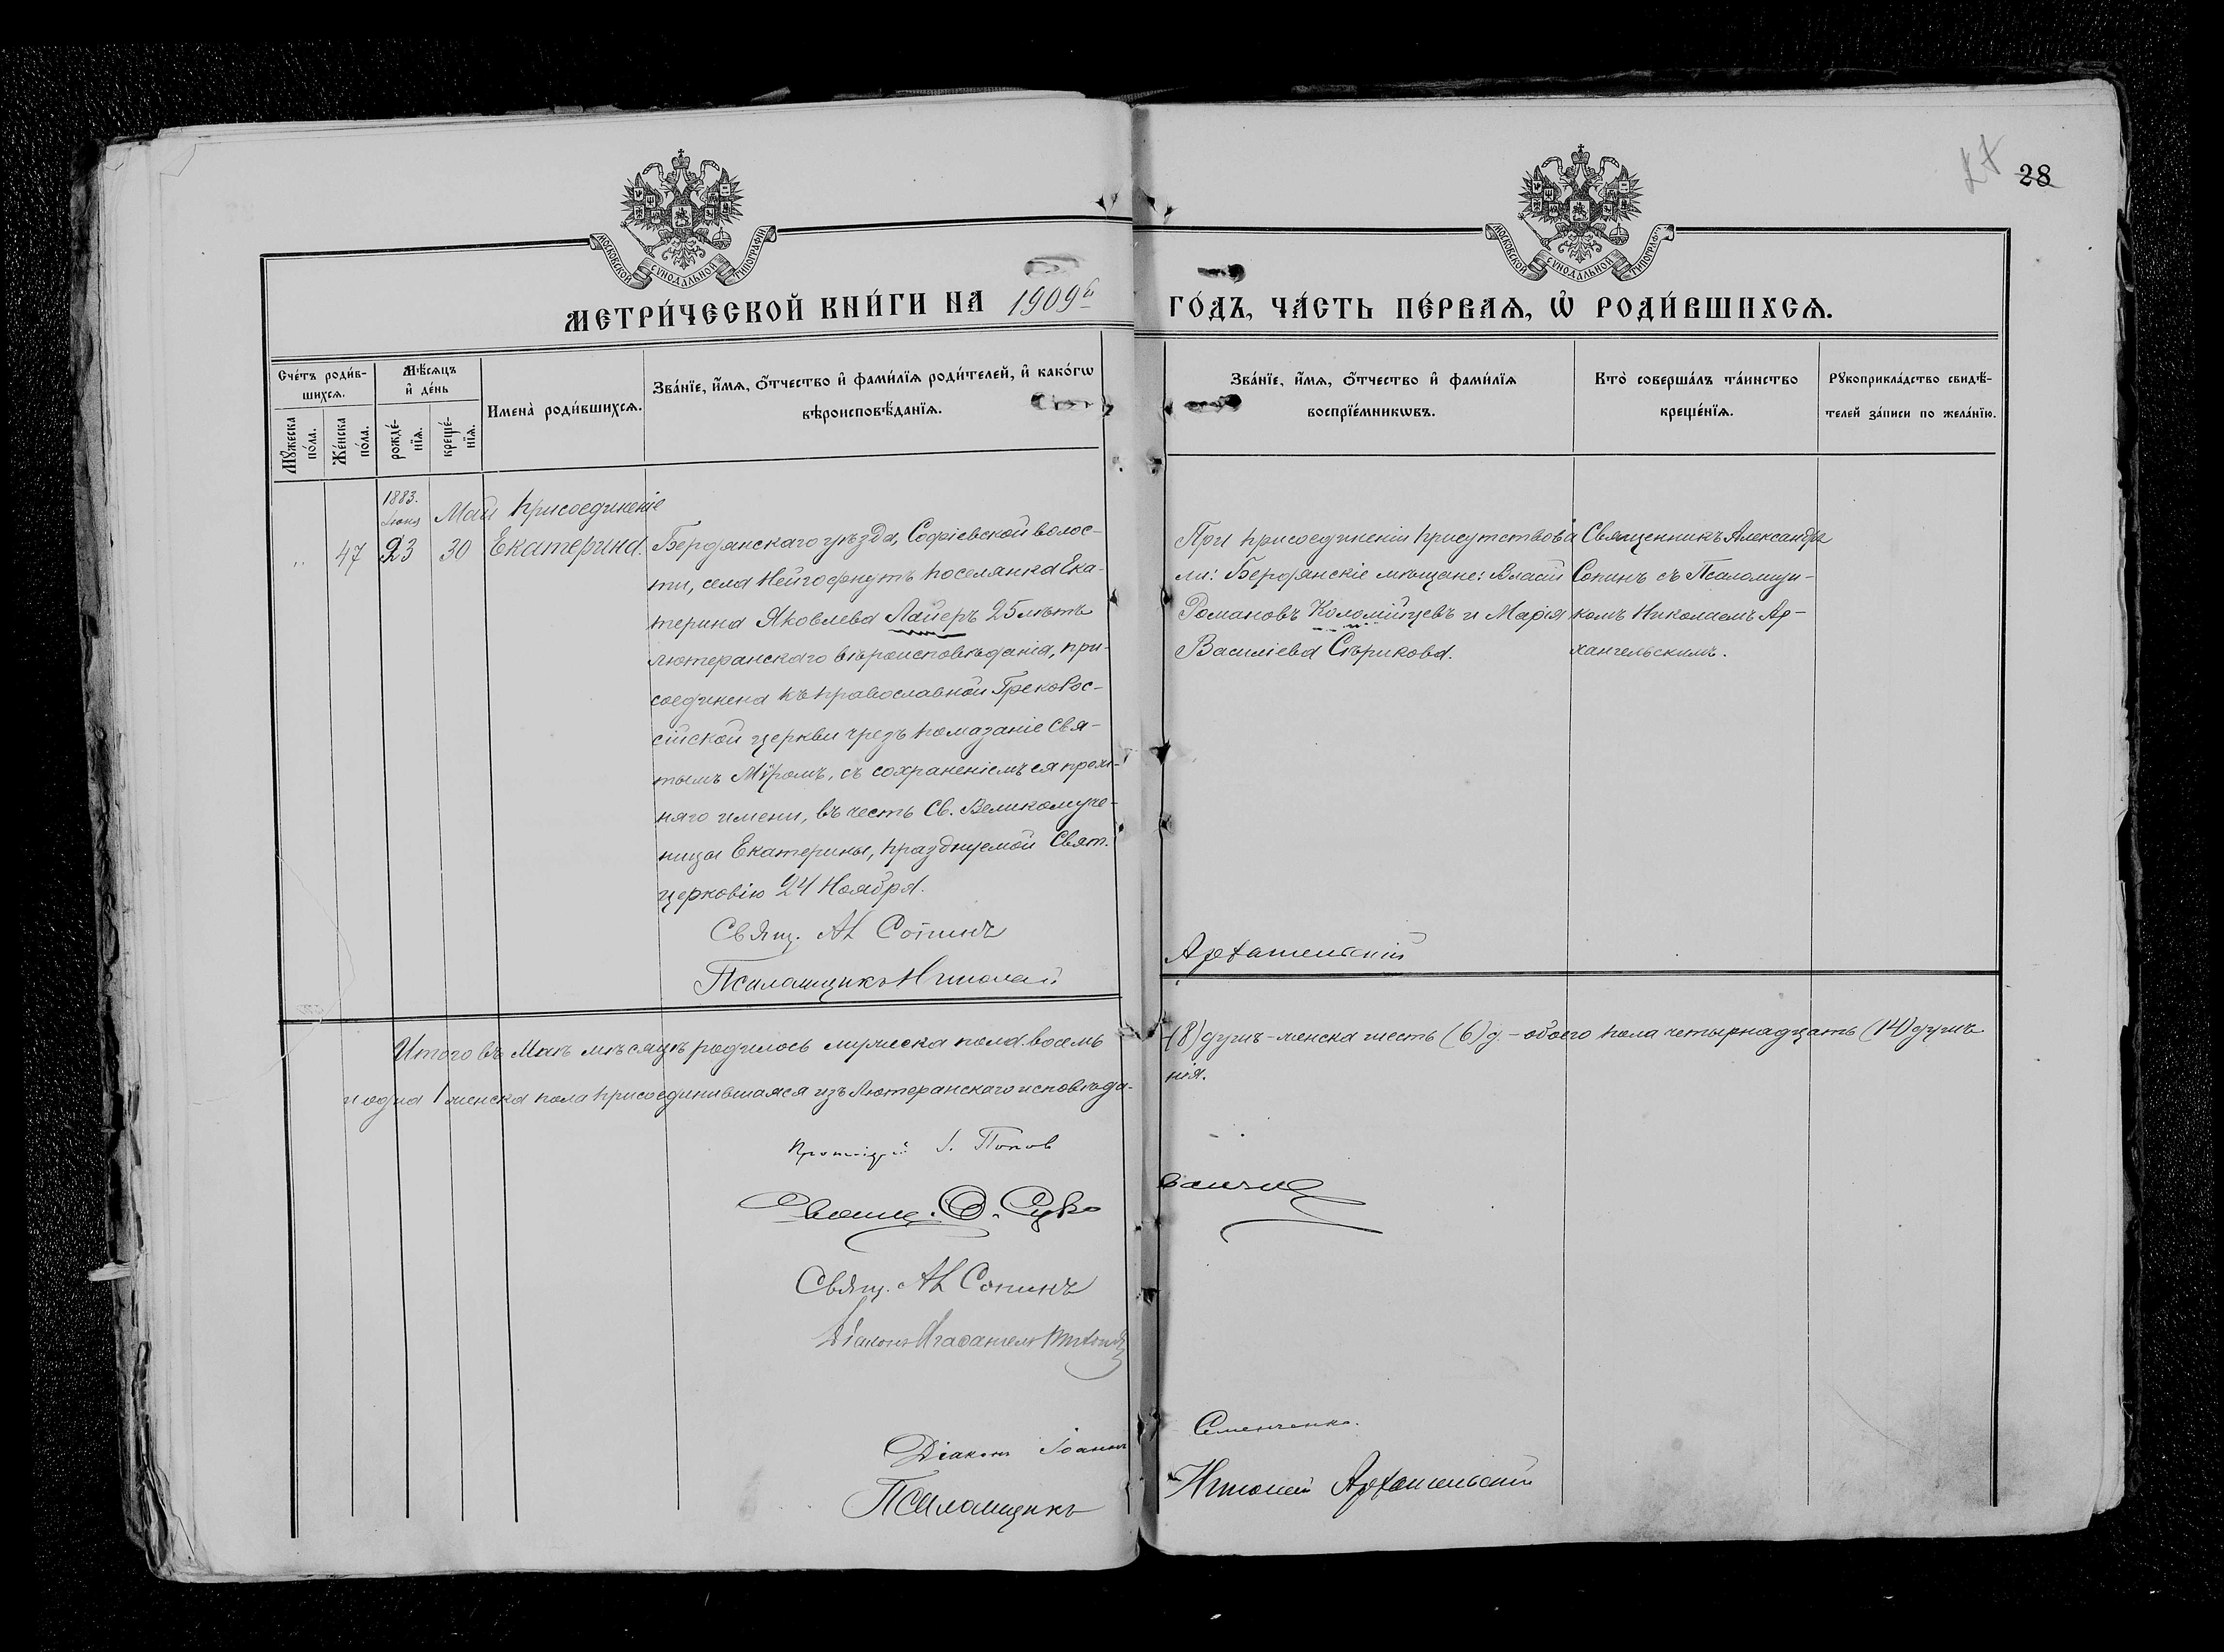 28
МОСКОВСКОЙ СѴНОДАЛЬНОЙ ТИПОГРАФІИ
МОСКОВСКОЙ СѴНОДАЛЬНОЙ ТИПОГРАФІИ
МЕТРИ́ЧЕСКОЙ КНИ́ГИ НА 1909й ГО́ДЪ, ЧА́СТЬ ПЕ́РВАѦ, Ѽ РОДИ́ВШИХСѦ.
Сче́тъ роди́в-
шихсѧ.
Мꙋ́жеска по́ла.
Же́нска по́ла.
Мѣ́сѧцъ
и҆ де́нь
рожде́-
нїѧ.
креще́-
нїѧ.
Имена̀ роди́вшихсѧ.
Зва́нїе, и҆́мѧ, ѻ҆́тчество и҆ фами́лїѧ роди́телей, и҆ како́гѡ
вѣроисповѣ́данїѧ.
Зва́нїе, и҆́мѧ, ѻ҆́тчество и҆ фами́лїѧ
воспрїе́мникѡвъ.
Кто̀ соверша́лъ та́инство
креще́нїѧ.
Рꙋкоприкла́дство свидѣ́-
телей за́писи по жела́нїю.
1883.
Іюня
Май Присоединеніе
" 47 23 30 Екатерина.
Бердянскаго уѣзда, Софіевской волос-
ти, села Нейгофнутъ поселянка Ека-
терина Яковлева Лайеръ 25 лѣтъ
лютеранскаго вѣроисповѣданія, при-
соединена къ православной Грекорос-
сійской церкви чрезъ помазаніе Свя-
тымъ Мѵромъ, съ сохраненіемъ ея преж-
няго имени, въ честь Св. Великомуче-
ницы Екатерины, празднуемой Свят.
церковію 24 Ноября.
Свящ. Ал Сопинъ
Псаломщикъ Николай Архангельскій
При присоединеніи присутствова
ли: Бердянскіе мѣщане: Власій
Романовъ Коломійцевъ и Марія
Василіева Сѣрикова.
Священникъ Александръ
Сопинъ съ Псаломщи-
комъ Николаемъ Ар-
хангельскимъ.
Итого въ Маѣ мѣсяцѣ родилось мужеска пола восемь (8) душъ - женска шесть (6) д. - обоего пола четырнадцать (14) душъ
и одна 1 женска пола присоединившаяся изъ Лютеранскаго исповѣда-нія.
Протоіерей І. Попов
Свящ. Ѳ.
Свящ. Ал Сопинъ
Діаконъ
Діаконъ Іоаннъ Семенченко.
Псаломщикъ Николай Архангельскій